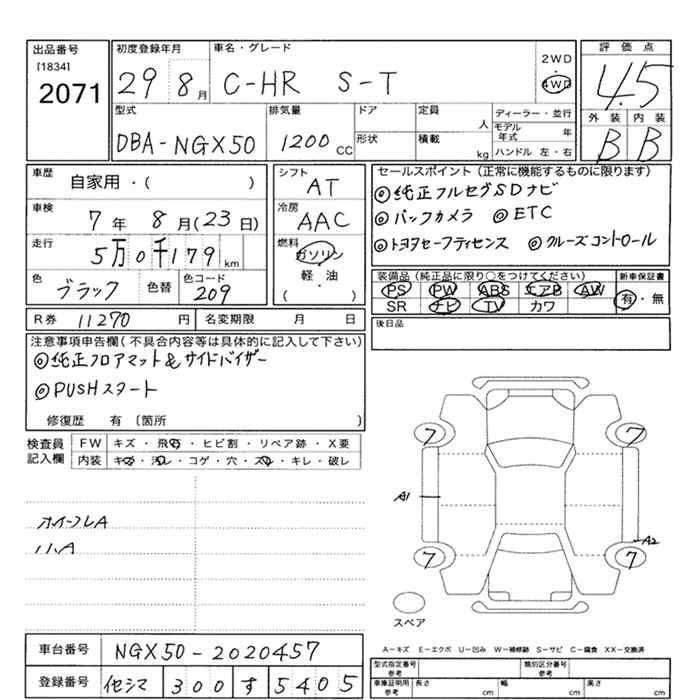 出品番号
[1834]
2071
初度登録年月
29 8月
車名・グレード
C-HR S-T
2WD
4WD
評価点
4.5
外装 内装
B B
型式
DBA-NGX50
排気量
1200 CC
ドア
形状
定員 人
積載 kg
ディーラー・並行
モデル年式 年
ハンドル 左・右
車歴
自家用・( )
車検
7年 8月(23日)
走行
5万0千179 km
色
ブラック
色替
色コード
209
シフト
AT
冷房
AAC
燃料
ガソリン
・
軽・油
( )
セールスポイント(正常に機能するものに限ります)
◎純正フルセグSDナビ
◎バックカメラ ◎ETC
◎トヨタセーフティセンス ◎クルーズコントロール
装備品(純正品に限り○をつけてください)
PS PW ABS エアB AW
SR ナビ TV カワ
新車保証書
有・無
後日品
R券 11270 円
名変期限 月 日
注意事項申告欄(不具合内容等は具体的に記入して下さい)
◎純正フロアマット&サイドバイザー
◎PUSHスタート
修復歴 有〔箇所 〕
検査員記入欄
FW キズ・飛石・ヒビ割・リペア跡・X要
内装 キズ・汚レ・コゲ・穴・スレ・キレ・破レ
ホイールA
7 7
A1
A2
7 7
スペア
A-キズ E-エクボ U-凹み W-補修跡 S-サビ C-腐食 XX-交換済
車台番号 NGX50-2020457
登録番号 300 す 5405
型式指定番号 参考
類別区分番号 参考
車庫証明用 参考
長さ cm
幅 cm
高さ cm